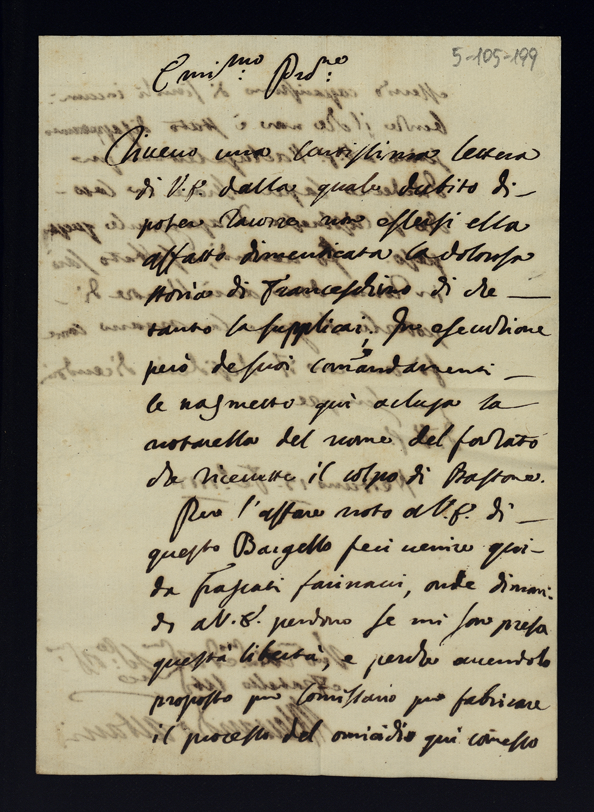 5-105-199
Emi.mo Prd.ne
Riceuo una Cortissima lettera
di V.E. dalla quale dubito di
poter racorre non essersi ella
affatto dimendicata la dolorosa
storia di Franceschino di che
tanto la supplicai, In esecuzione
però de suoi comandamenti
le trasmetto qui aclusa la
notarella del nome del forzato
che riceuette il colpo di Bastone.
Per l'affare noto a V.E. di
questo Bargello feci uenire qui
da Frascati farinacci, onde diman-
do a V.E. perdono se mi sono presa
questa libertà, e perche auendolo
proposto per Comissario per fabricare
il processo del omicidio qui comesso